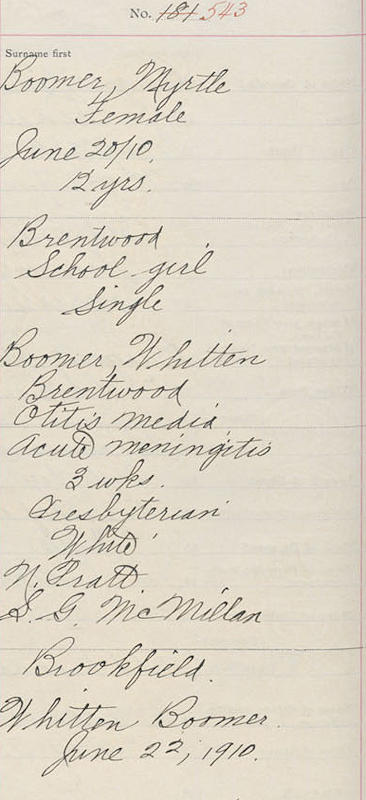 No. 181 543
Surname first
Boomer, Myrtle
Female
June 20/10.
12 yrs.
Brentwood
School girl
Single
Boomer, Whitten
Brentwood
Otitis media
Acute meningitis
3 wks.
Presbyterian
White
N. Pratt
S. G. McMillan
Brookfield.
Whitten Boomer.
June 22, 1910.